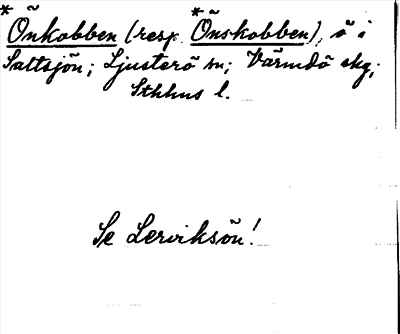 *Önkobben (resp. *Önskobben), ö i
Saltsjön; Ljusterö sn; Värmdö skg;
Sthlms l.
Se Lerviksön!